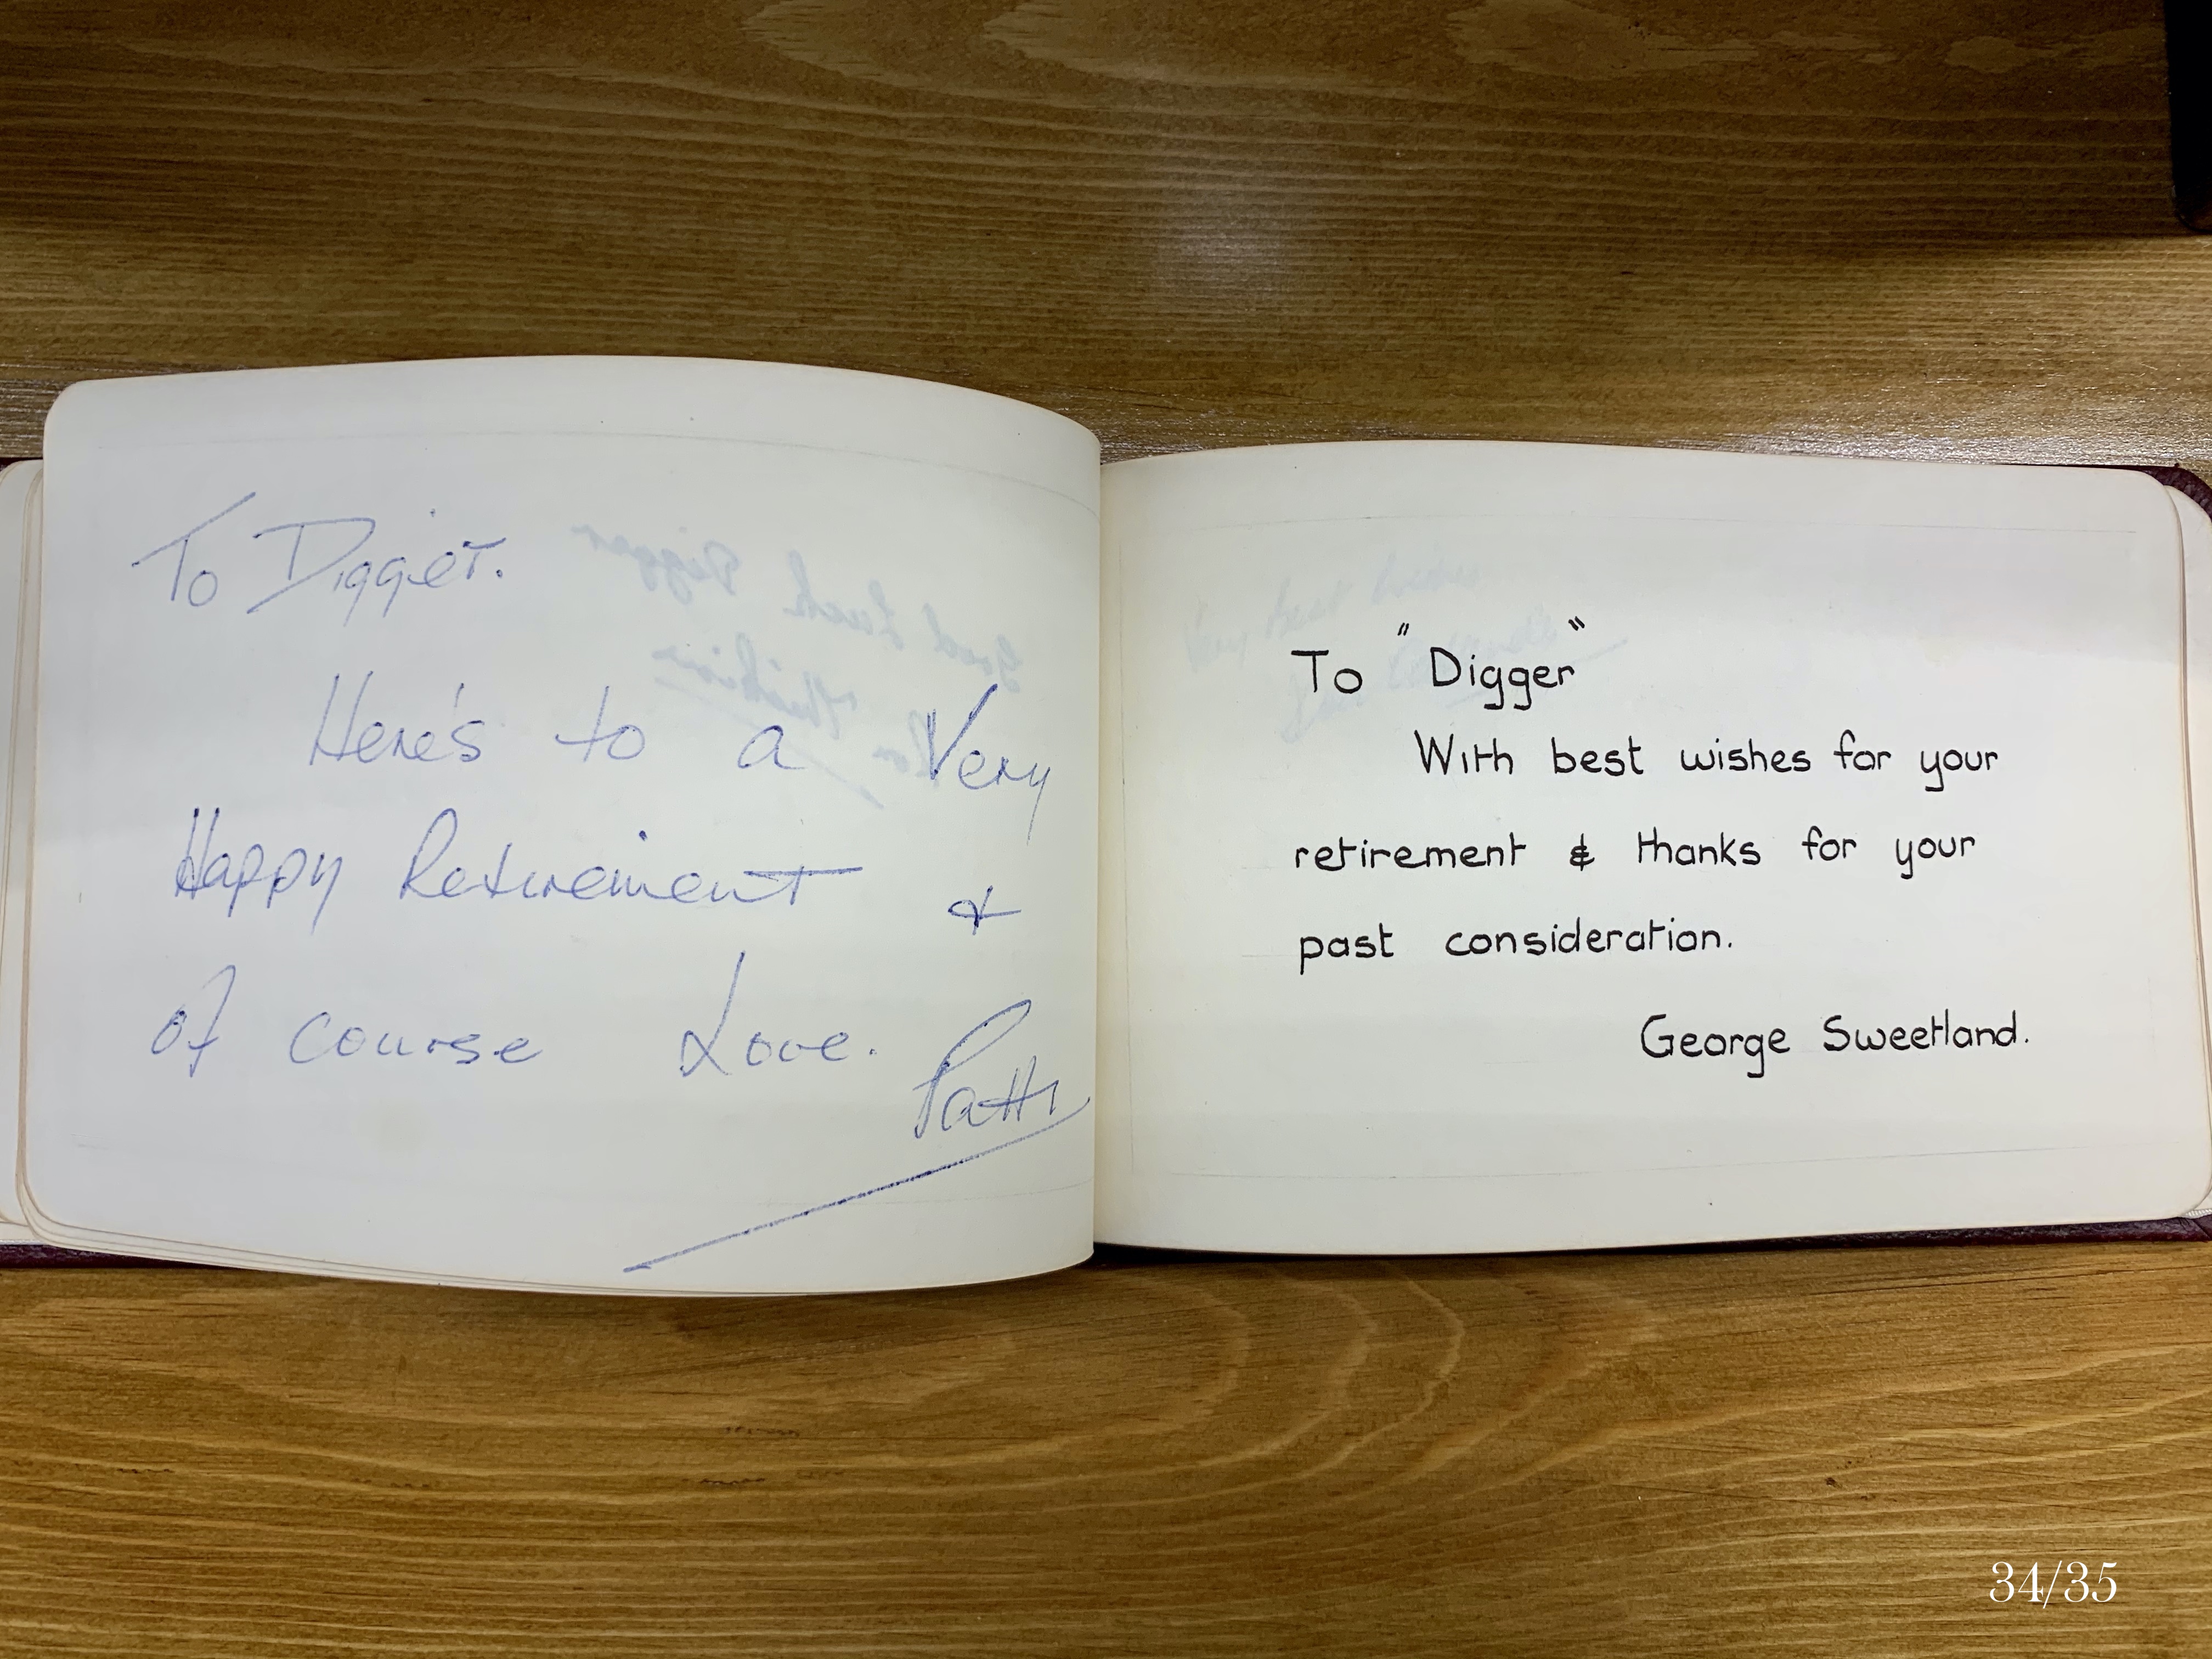 To Digger.
Here's to a Very
Happy Retirement &
of course Love.
Patti
Good Luck Digger
To "Digger"
With best wishes for your
retirement & thanks for your
past consideration.
George Sweetland.
Very best wishes
34/35